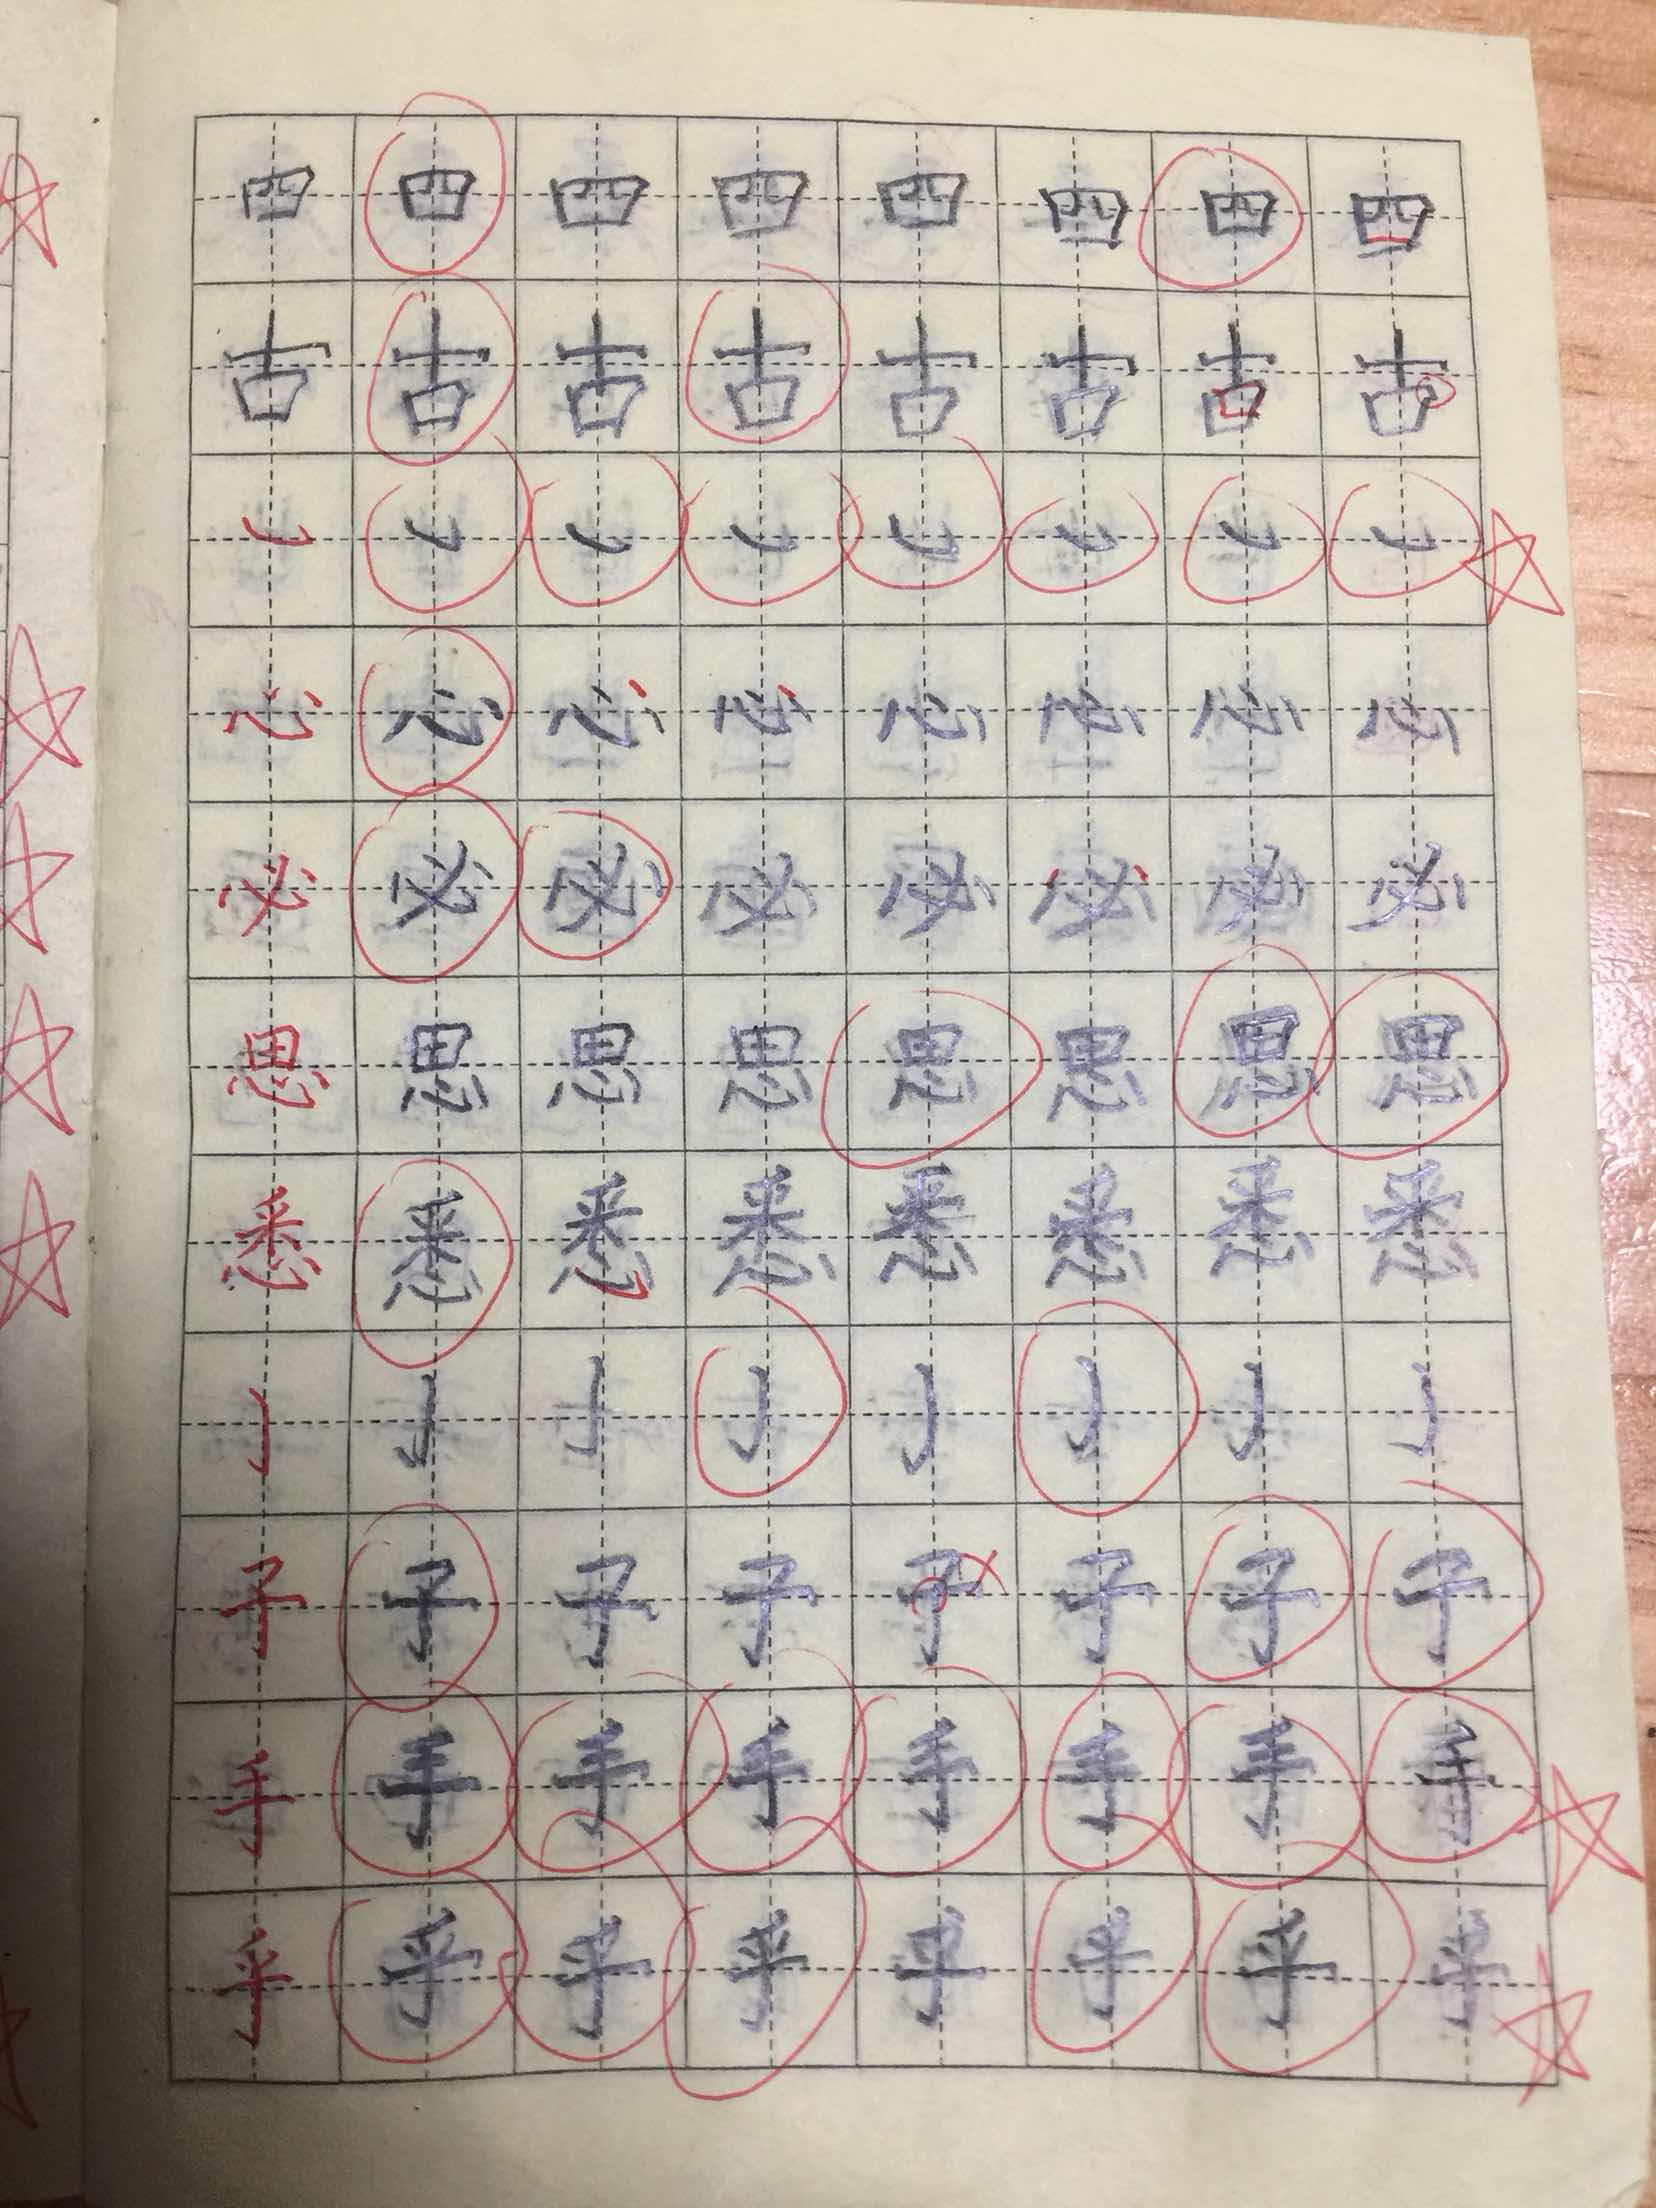 四四四四四四四四
吉吉吉吉吉吉吉吉
㇃㇃㇃㇃㇃㇃㇃㇃
心心心心心心心心
必必必必必必必必
思思思思思思思思
悉悉悉悉悉悉悉悉
亅亅亅亅亅亅亅亅
子子子子子子子子
手手手手手手手手
乎乎乎乎乎乎乎乎